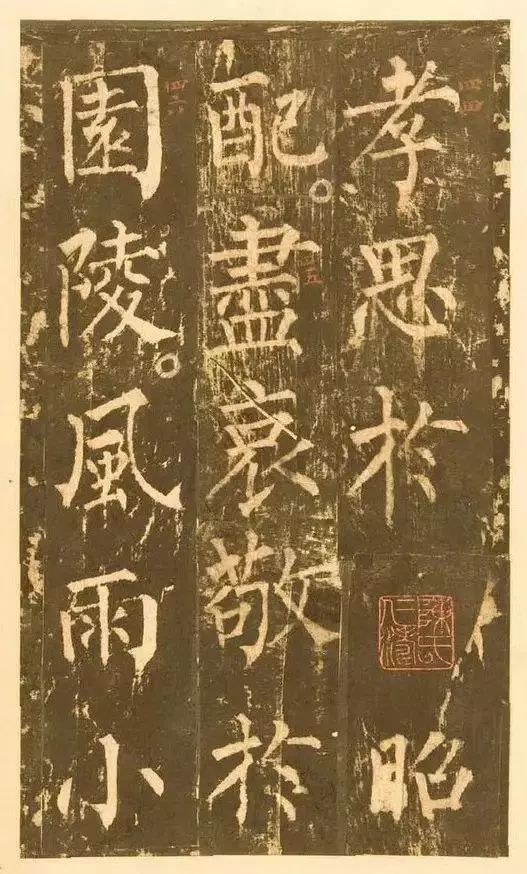 孝思於昭
配盡哀敬於
園陵風雨小